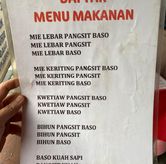 DAFTAR
MENU MAKANAN
MIE LEBAR PANGSIT BASO
MIE LEBAR PANGSIT
MIE LEBAR BASO
MIE KERITING PANGSIT BASO
MIE KERITING PANGSIT
MIE KERITING BASO
KWETIAW PANGSIT BASO
KWETIAW PANGSIT
KWETIAW BASO
BIHUN PANGSIT BASO
BIHUN PANGSIT
BIHUN BASO
BASO KUAH SAPI